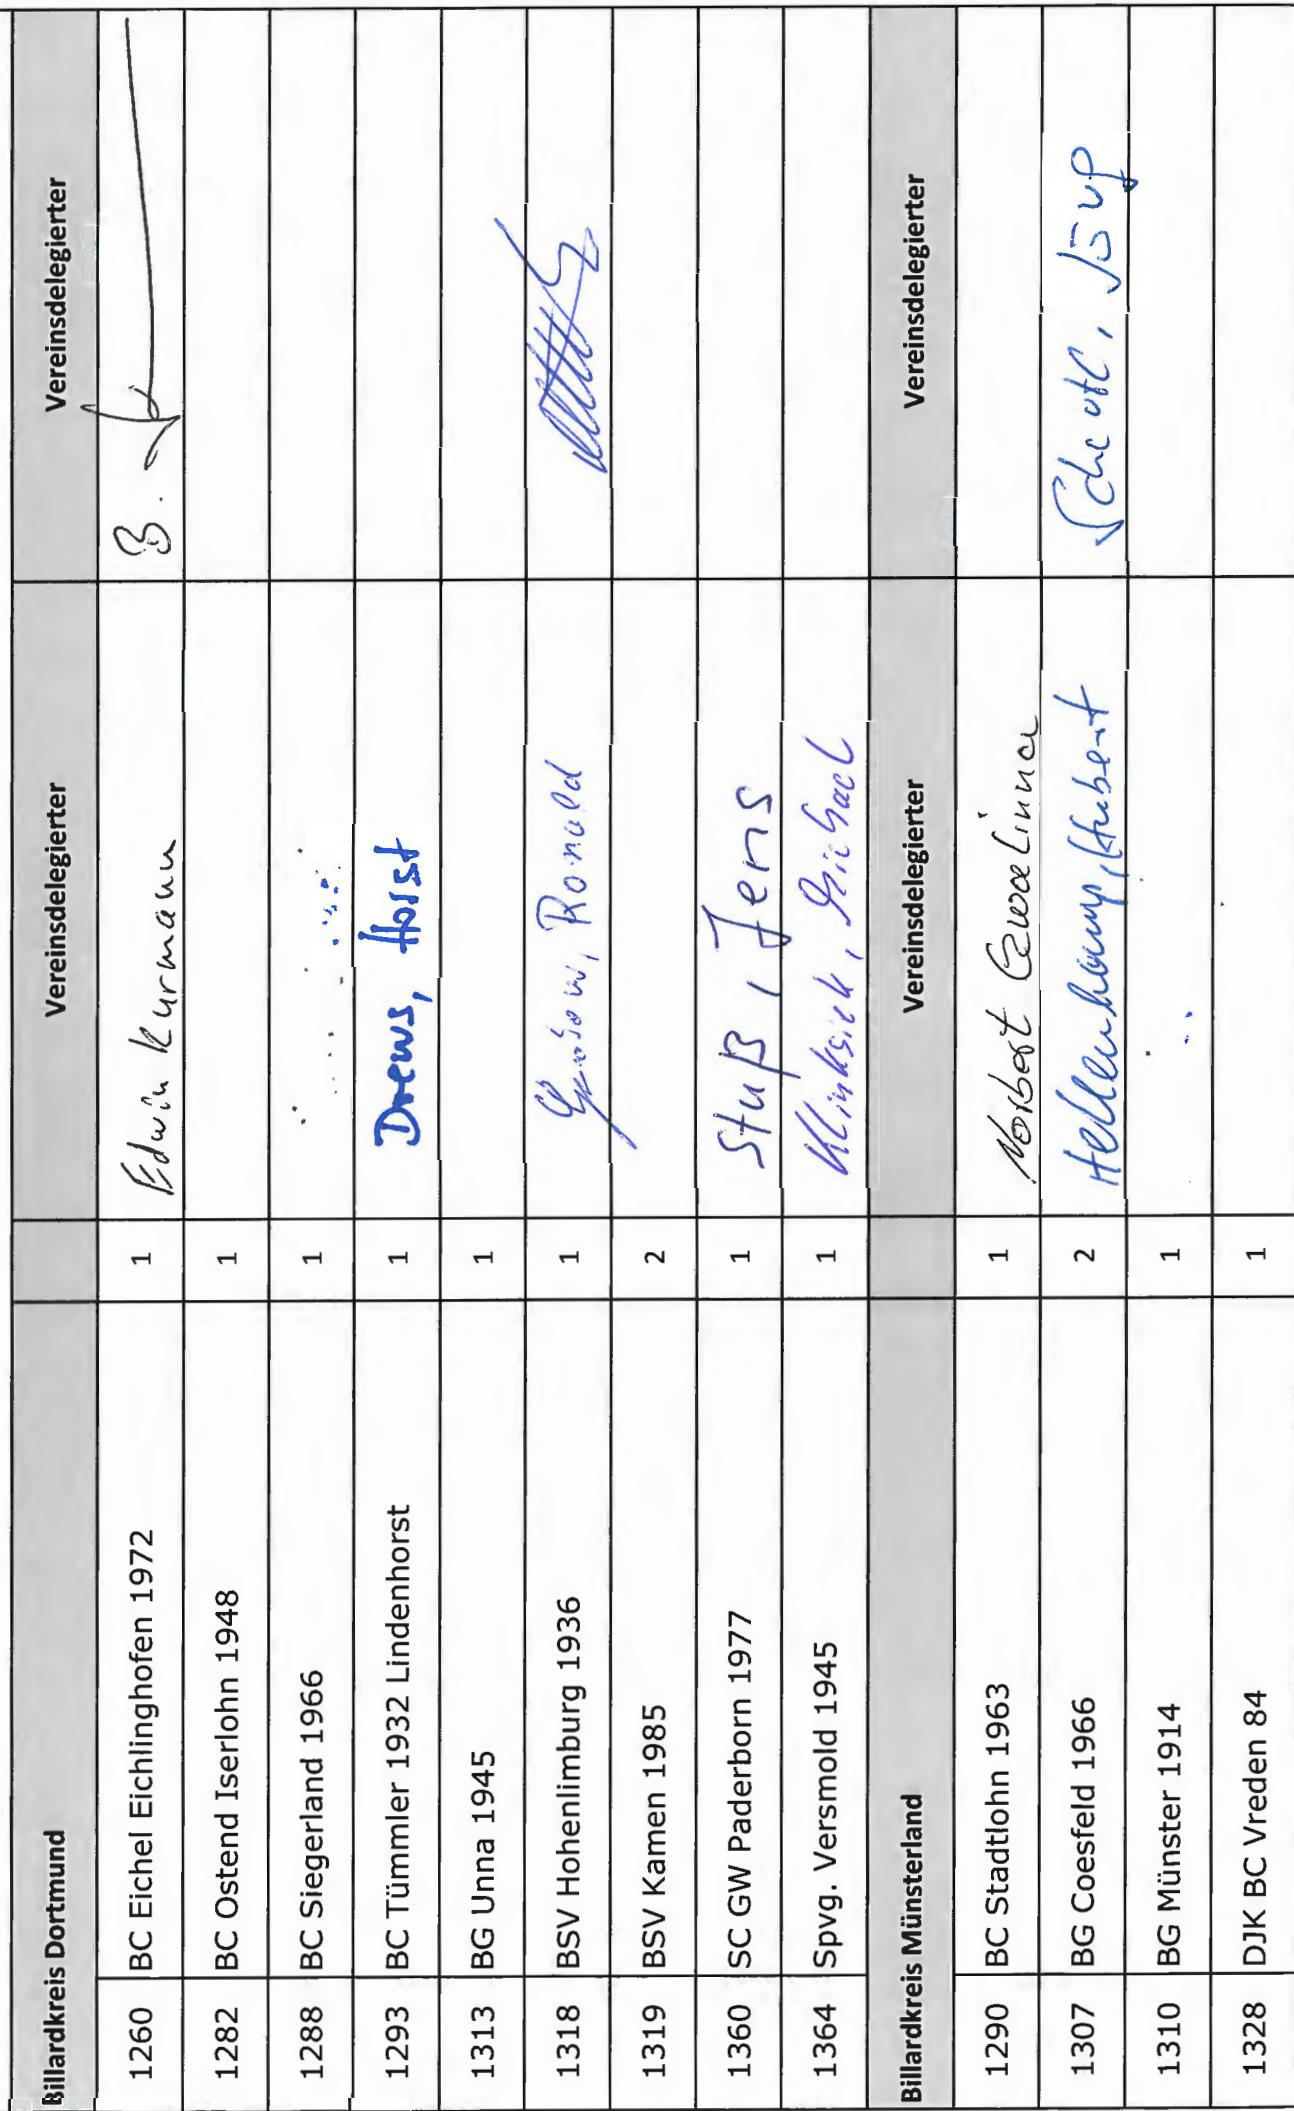 Billardkreis Dortmund Vereinsdelegierter Vereinsdelegierter
1260 BC Eichel Eichlinghofen 1972 1 Edwin Kurmann
1282 BC Ostend Iserlohn 1948 1
1288 BC Siegerland 1966 1
1293 BC Tümmler 1932 Lindenhorst 1 Drews, Horst
1313 BG Unna 1945 1
1318 BSV Hohenlimburg 1936 1 Ronald
1319 BSV Kamen 1985 2
1360 SC GW Paderborn 1977 1 Stuß, Jens
1364 Spvg. Versmold 1945 1 Klinksiek, Michael
Billardkreis Münsterland Vereinsdelegierter Vereinsdelegierter
1290 BC Stadtlohn 1963 1 Norbert
1307 BG Coesfeld 1966 2 Hellenkamp, Hubert
1310 BG Münster 1914 1
1328 DJK BC Vreden 84 1